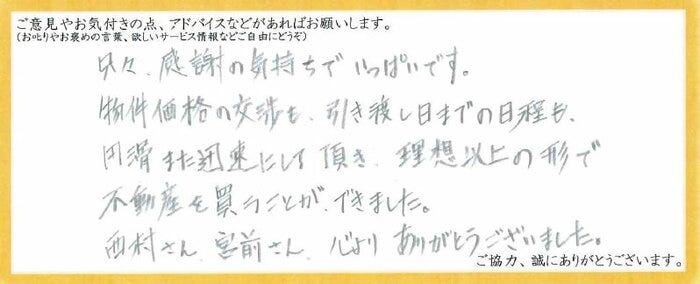 ご意見やお気付きの点、アドバイスなどがあればお願いします。
(お叱りやお褒めの言葉、欲しいサービス情報などご自由にどうぞ)
只々、感謝の気持ちでいっぱいです。
物件価格の交渉も、引き渡し日までの日程も、
円滑また迅速にして頂き、理想以上の形で
不動産を買うことが、できました。
西村さん、宮前さん、心よりありがとうございました。
ご協力、誠にありがとうございます。